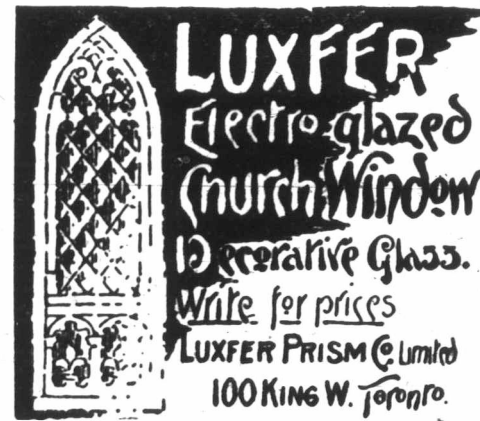 LUXFER
Electro-glazed
Church Window
Decorative Glass.
Write for prices
LUXFER PRISM Co Limited
100 KING W. Toronto.